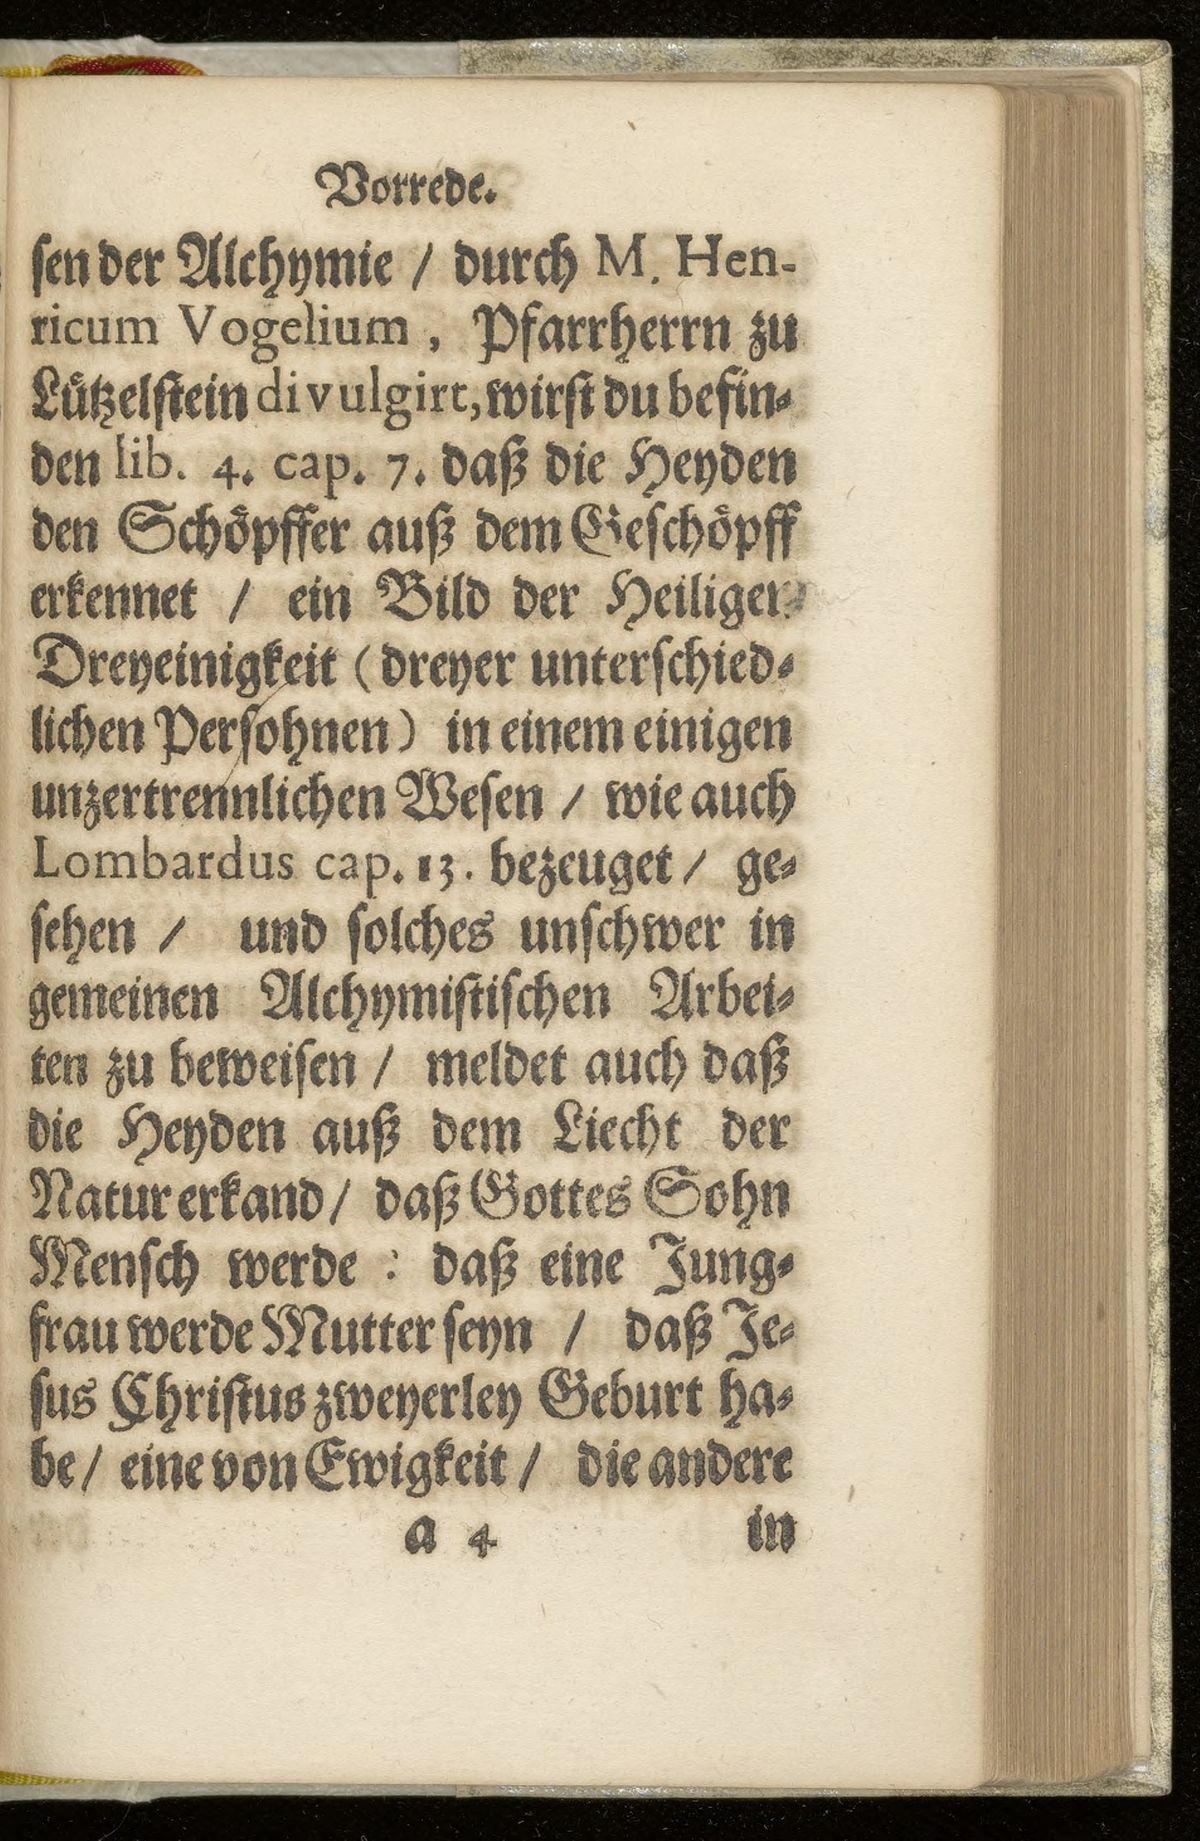 Vorrede.
sen der Alchymie / durch M. Hen-
ricum Vogelium, Pfarrherrn zu
Lützelstein divulgirt, wirst du befin-
den lib. 4. cap. 7. daß die Heyden
den Schöpffer auß dem Geschöpff
erkennet / ein Bild der Heiligen
Dreyeinigkeit (dreyer unterschied-
lichen Persohnen) in einem einigen
unzertrennlichen Wesen / wie auch
Lombardus cap. 13. bezeuget / ge-
sehen / und solches unschwer in
gemeinen Alchymistischen Arbei-
ten zu beweisen / meldet auch daß
die Heyden auß dem Liecht der
Natur erkand / daß Gottes Sohn
Mensch werde : daß eine Jung-
frau werde Mutter seyn / daß Je-
sus Christus zweyerley Geburt ha-
be / eine von Ewigkeit / die andere
a 4 in